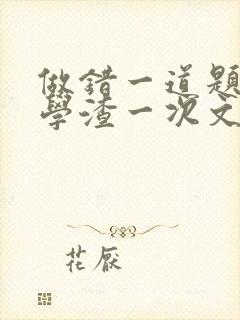 做錯一道題
學渣一次文
花厭